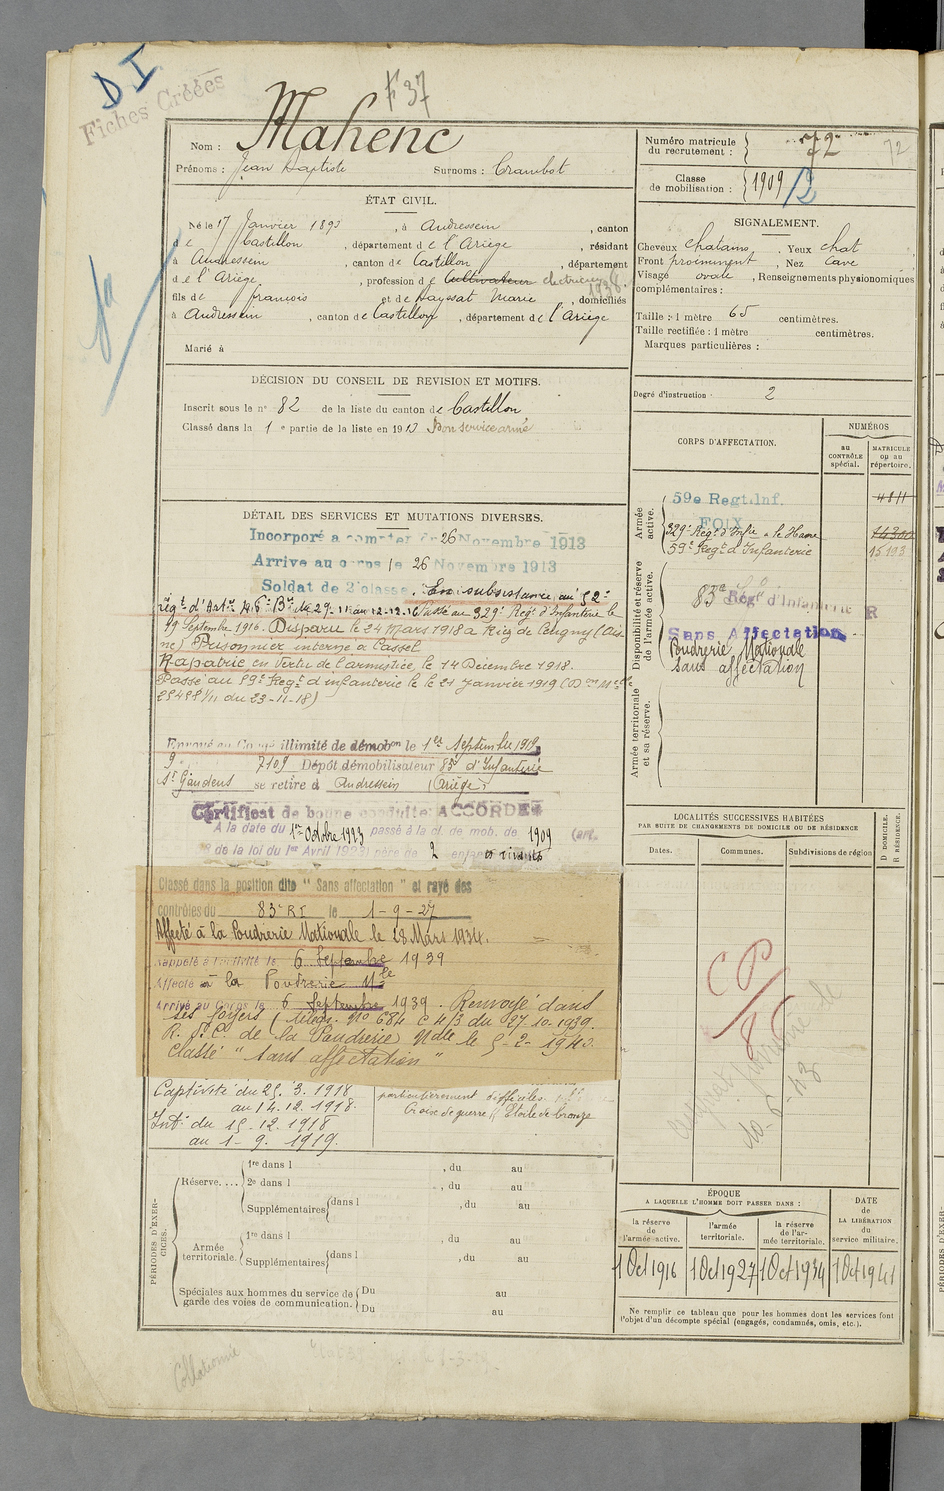 D I
Fiches Créées
F 37
Nom : Mahenc
Prénoms : Jean Baptiste Surnoms : Crambot
ÉTAT CIVIL.
Né le 17 Janvier 1893, à Audressein, canton
de Castillon, département de l'Ariège, résidant
à Audressein, canton de Castillon, département
de l'Ariège, profession de Cultivateur electricien
1938.
fils de françois et de Sayssat Marie, domiciliés
à Audressein, canton de Castillon, département de l'Ariège
Marié à
DÉCISION DU CONSEIL DE REVISION ET MOTIFS.
Inscrit sous le n° 82 de la liste du canton de Castillon
Classé dans la 1e partie de la liste en 1913 Bon service armé
DÉTAIL DES SERVICES ET MUTATIONS DIVERSES.
Incorporé à compter du 26 Novembre 1913
Arrivé au corps le 26 Novembre 1913
Soldat de 2e classe. En subsistance au 52e
Régt d'Artie 46e Bie du 29-11 au 12.12.16 Passé au 329e Régt d'Infanterie le
19 Septembre 1916. Disparu le 24 Mars 1918 à
Prisonnier interné à Cassel
Rapatrié en vertu de l'armistice, le 14 Décembre 1918.
Passé au 59e Régt d'infanterie le 21 Janvier 1919
du 23-11-18)
Envoyé en Congé illimité de démobon le 1er Septembre 1919,
9e 7109 Dépôt démobilisateur 83e d'Infanterie
St Gaudens se retire à Audressein (Ariège)
Certificat de bonne conduite ACCORDÉ
A la date du 1er Octobre 1923 passé à la cl. de mob. de 1909 (art.
de la loi du 1er Avril 1923) père de 2 enfants vivants
Classé dans la position dite "Sans affectation" et rayé des
contrôles du 83e RI le 1-9-27
Affecté à la Poudrerie Nationale le 28 Mars 1934.
Rappelé à l'activité le 6 Septembre 1939
Affecté à la Poudrerie Nle
Arrivé au Corps le 6 Septembre 1939. Renvoyé dans
ses foyers (télég. No 684 C 4/3 du 27.10.1939.
R. P. C. de la Poudrerie Nale le 5-2-1940.
Classé "sans affectation"
Captivité du 25.3.1918
au 14.12.1918.
Int. du 15-12.1918
au 1-9.1919.
particulièrement difficiles.
Croix de guerre Etoile de bronze
PÉRIODES D'EXERCICES.
Réserve....
1re dans l , du au
2e dans l , du au
Supplémentaires dans l , du au
Armée territoriale.
1re dans l , du au
Supplémentaires dans l , du au
Spéciales aux hommes du service de garde des voies de communication.
Du au
Du au
Collationné
Numéro matricule du recrutement : 72
72
Classe de mobilisation : 1909 /2
SIGNALEMENT.
Cheveux chatains, Yeux chat
Front proéminent, Nez cave
Visage ovale, Renseignements physionomiques
complémentaires :
Taille : 1 mètre 65 centimètres.
Taille rectifiée : 1 mètre centimètres.
Marques particulières :
Degré d'instruction : 2
CORPS D'AFFECTATION.
NUMÉROS
au CONTRÔLE spécial.
MATRICULE ou au répertoire.
Armée active.
59e Regt. Inf.
FOIX
329e Régt d'Infie à le Havre
59e Regt d'Infanterie
15193
Disponibilité et réserve de l'armée active.
83e Reg d'Infanterie R
Sans Affectation
Poudrerie Nationale
sans affectation
Armée territoriale et sa réserve.
LOCALITÉS SUCCESSIVES HABITÉES
PAR SUITE DE CHANGEMENTS DE DOMICILE OU DE RÉSIDENCE
Dates.
Communes.
Subdivisions de région
D DOMICILE.
R RÉSIDENCE.
CP
ÉPOQUE
A LAQUELLE L'HOMME DOIT PASSER DANS :
la réserve de l'armée active.
l'armée territoriale.
la réserve de l'armée territoriale.
DATE DE LA LIBÉRATION du service militaire.
1 Oct 1916
1 Oct 1927
1 Oct 1934
1 Oct 1941
Ne remplir ce tableau que pour les hommes dont les services font
l'objet d'un décompte spécial (engagés, condamnés, omis, etc.).